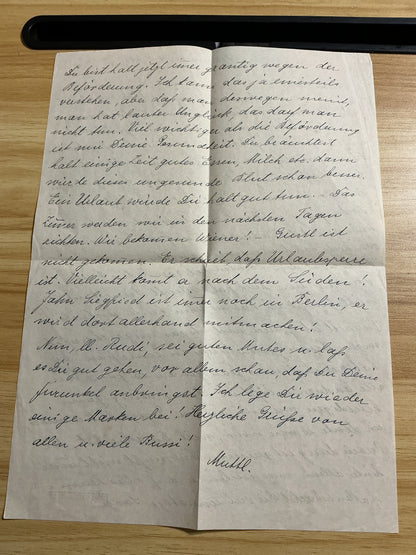 Du bist halt jetzt im̄er grantig wegen der
Beförderung. Ich kann das ja einerseits
verstehen, aber daß man deswegen meint,
man hat lauter Unglück, das darf man
nicht tun. Viel wichtiger als die Beförderung
ist mir Deine Gesundheit. Du bräuchtest
halt einige Zeit gutes Essen, Milch etc. dann
würde dieses ungesunde Blut schon besser.
Ein Urlaub würde Dir halt gut tun. – Das
Zim̄er werden wir in den nächsten Tagen
richten. Wir bekommen Wiener! – Gustl ist
nicht gekommen. Er schreibt, daß Urlaubsperre
ist. Vielleicht kom̄t er nach dem Süden!
Jahn Siegfried ist im̄er noch in Berlin, er
wird dort allerhand mitmachen!
Nun, lb. Rudi, sei guten Mutes u. laß
es Dir gut gehen, vor allem schau, daß Du Deine
Furunkel anbringst. Ich lege Dir wieder
einige Marken bei! Herzliche Grüße von
allen u. viele Bussi!
Muttl.